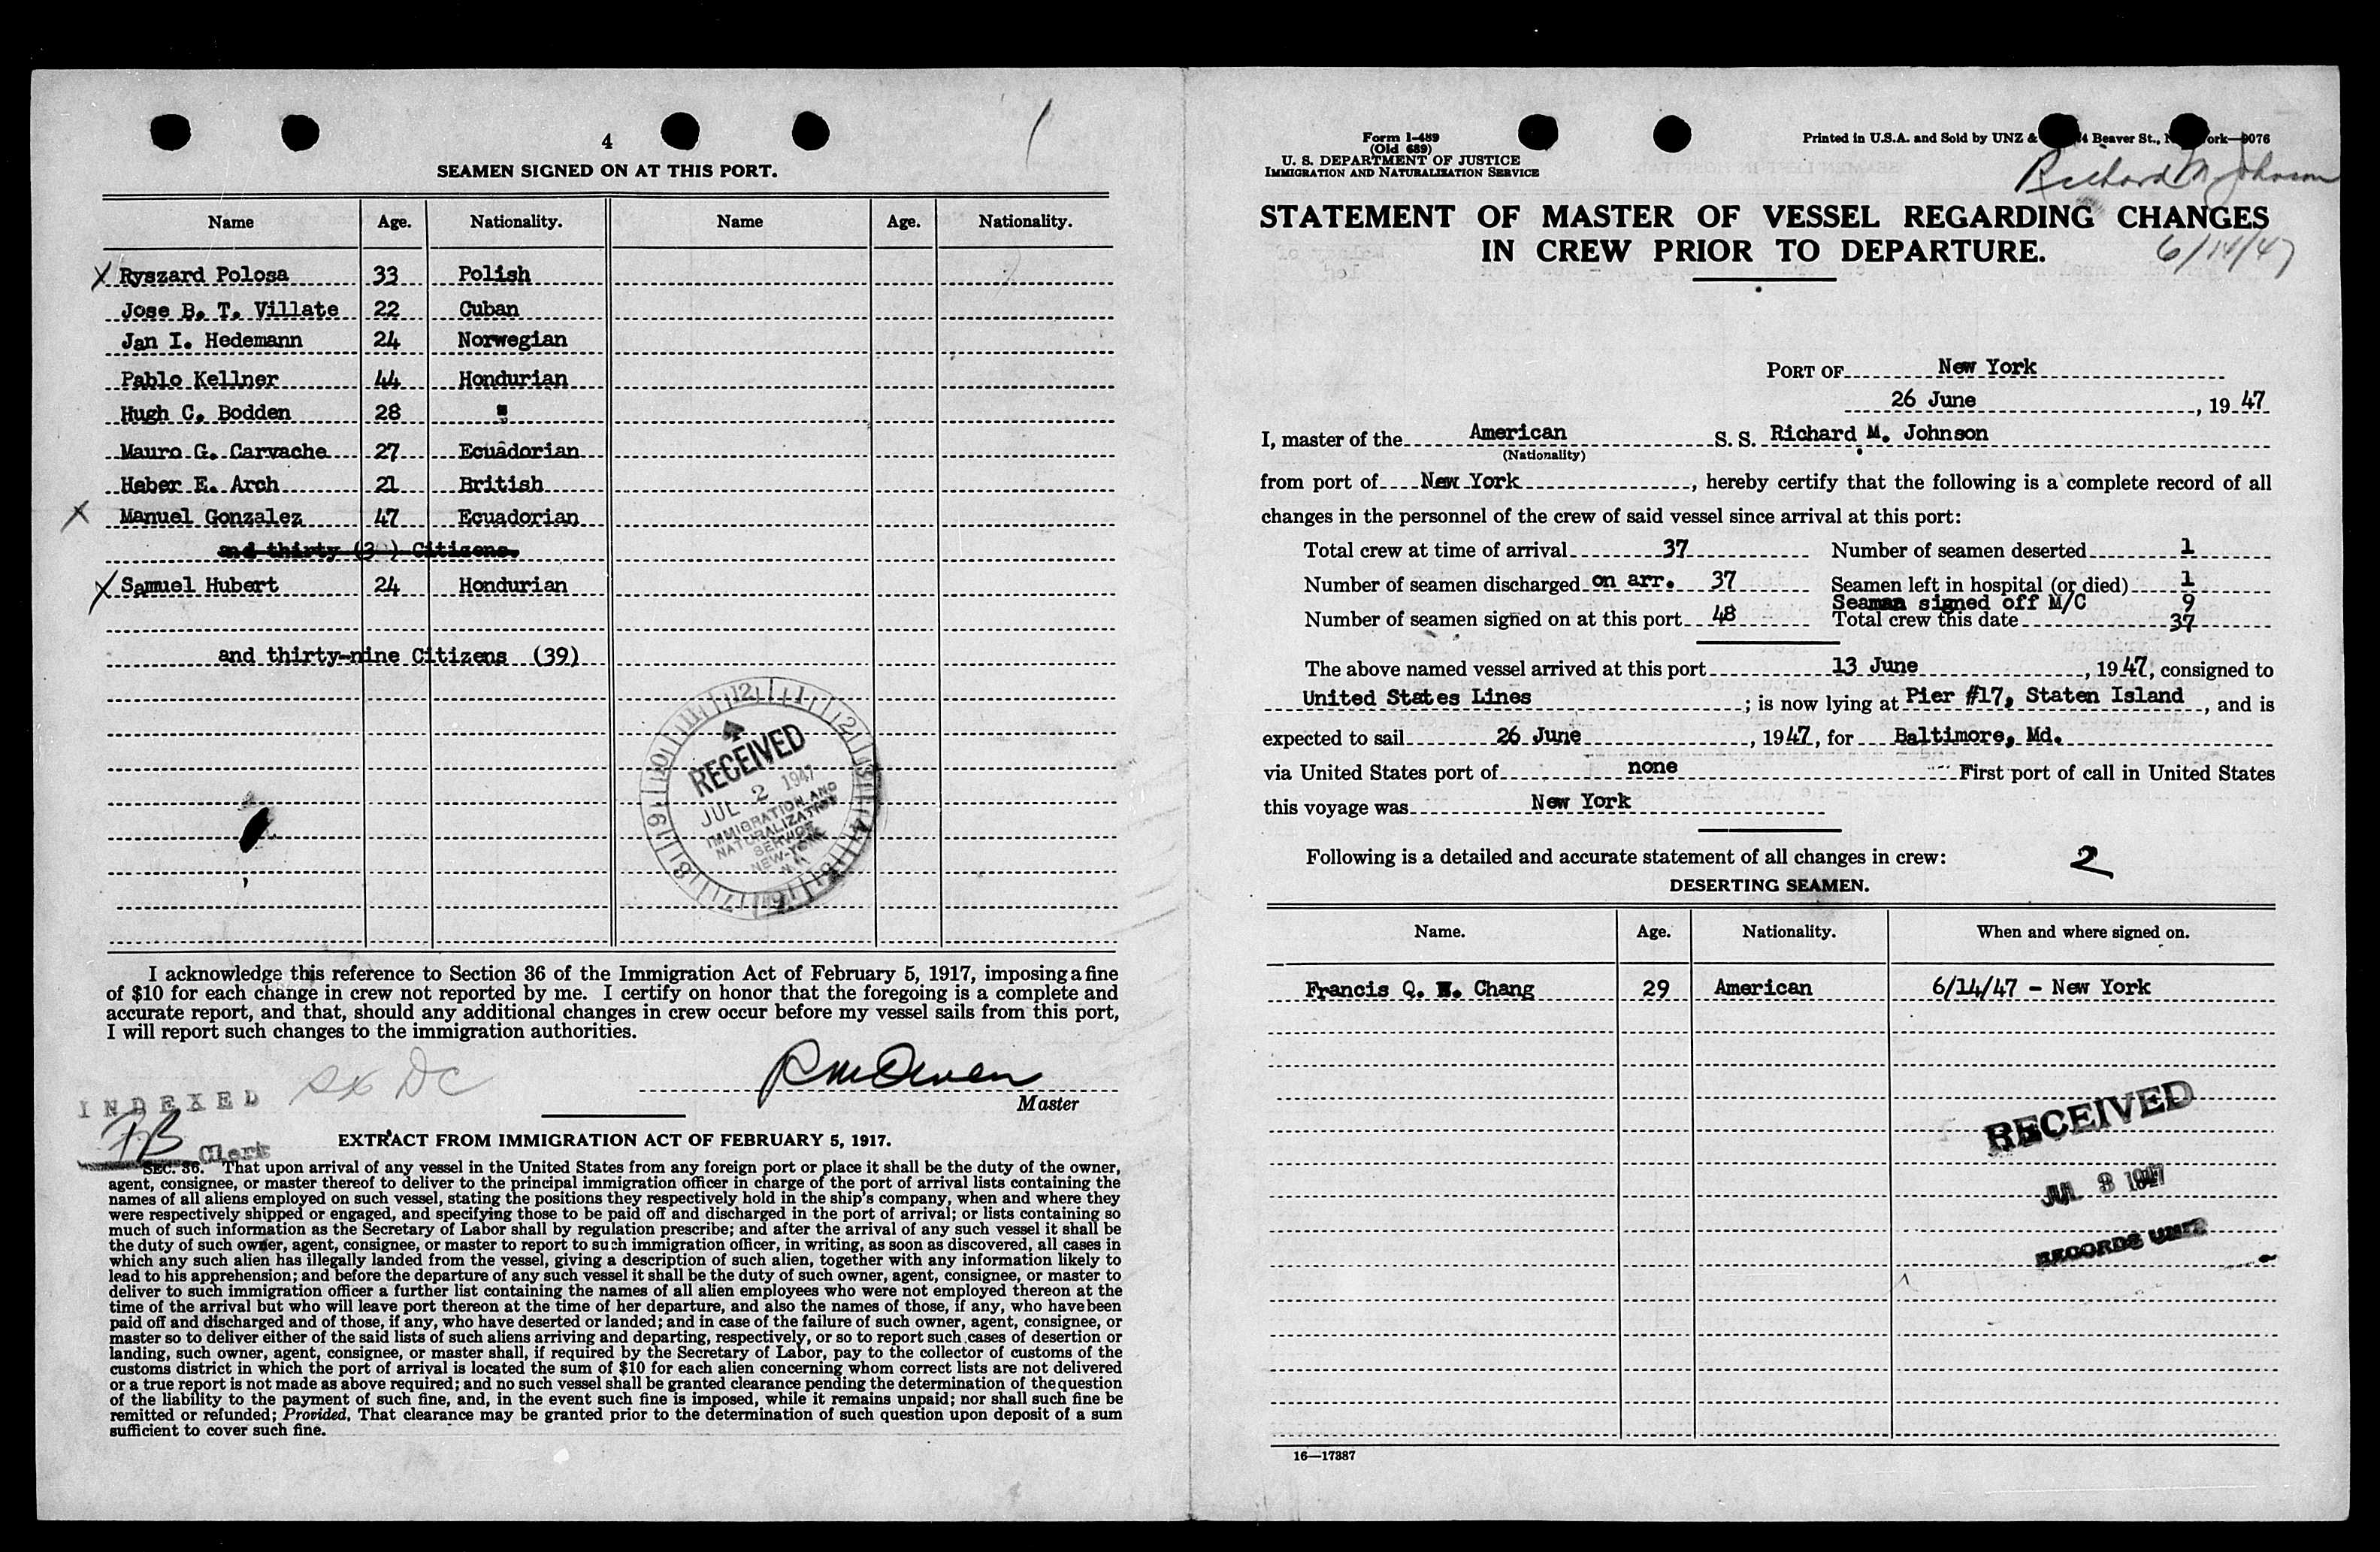 4
SEAMEN SIGNED ON AT THIS PORT.
Name Age. Nationality. Name Age. Nationality.
X Ryszard Polosa 33 Polish
Jose B. T. Villate 22 Cuban
Jan I. Hedemann 24 Norwegian
Pablo Kellner 44 Hondurian
Hugh C. Bodden 28 "
Mauro G. Carvache 27 Ecuadorian
Heber E. Arch 21 British
X Manuel Gonzalez 47 Ecuadorian
and thirty (3 ) Citizens.
X Samuel Hubert 24 Hondurian
and thirty-nine Citizens (39)
RECEIVED
JUL 2 1947
IMMIGRATION AND
NATURALIZATION
SERVICE
NEW-YORK
N.Y.
I acknowledge this reference to Section 36 of the Immigration Act of February 5, 1917, imposing a fine
of $10 for each change in crew not reported by me. I certify on honor that the foregoing is a complete and
accurate report, and that, should any additional changes in crew occur before my vessel sails from this port,
I will report such changes to the immigration authorities.
Master
INDEXED
FB Clerk
EXTRACT FROM IMMIGRATION ACT OF FEBRUARY 5, 1917.
SEC. 36. That upon arrival of any vessel in the United States from any foreign port or place it shall be the duty of the owner,
agent, consignee, or master thereof to deliver to the principal immigration officer in charge of the port of arrival lists containing the
names of all aliens employed on such vessel, stating the positions they respectively hold in the ship's company, when and where they
were respectively shipped or engaged, and specifying those to be paid off and discharged in the port of arrival; or lists containing so
much of such information as the Secretary of Labor shall by regulation prescribe; and after the arrival of any such vessel it shall be
the duty of such owner, agent, consignee, or master to report to such immigration officer, in writing, as soon as discovered, all cases in
which any such alien has illegally landed from the vessel, giving a description of such alien, together with any information likely to
lead to his apprehension; and before the departure of any such vessel it shall be the duty of such owner, agent, consignee, or master to
deliver to such immigration officer a further list containing the names of all alien employees who were not employed thereon at the
time of the arrival but who will leave port thereon at the time of her departure, and also the names of those, if any, who have been
paid off and discharged and of those, if any, who have deserted or landed; and in case of the failure of such owner, agent, consignee, or
master so to deliver either of the said lists of such aliens arriving and departing, respectively, or so to report such cases of desertion or
landing, such owner, agent, consignee, or master shall, if required by the Secretary of Labor, pay to the collector of customs of the
customs district in which the port of arrival is located the sum of $10 for each alien concerning whom correct lists are not delivered
or a true report is not made as above required; and no such vessel shall be granted clearance pending the determination of the question
of the liability to the payment of such fine, and, in the event such fine is imposed, while it remains unpaid; nor shall such fine be
remitted or refunded; Provided, That clearance may be granted prior to the determination of such question upon deposit of a sum
sufficient to cover such fine.
Form I-489
(Old 689)
U. S. DEPARTMENT OF JUSTICE
IMMIGRATION AND NATURALIZATION SERVICE
Printed in U.S.A. and Sold by UNZ & Beaver St., 9076
Richard M Johnson
STATEMENT OF MASTER OF VESSEL REGARDING CHANGES
IN CREW PRIOR TO DEPARTURE.
6/14/47
PORT OF New York
26 June, 1947
I, master of the American S. S. Richard M. Johnson
(Nationality)
from port of New York, hereby certify that the following is a complete record of all
changes in the personnel of the crew of said vessel since arrival at this port:
Total crew at time of arrival 37 Number of seamen deserted 1
Number of seamen discharged on arr. 37 Seamen left in hospital (or died) 1
Seaman signed off M/C 9
Number of seamen signed on at this port 48 Total crew this date 37
The above named vessel arrived at this port 13 June, 1947, consigned to
United States Lines; is now lying at Pier #17, Staten Island, and is
expected to sail 26 June, 1947, for Baltimore, Md.
via United States port of none First port of call in United States
this voyage was New York
Following is a detailed and accurate statement of all changes in crew: 2
DESERTING SEAMEN.
Name. Age. Nationality. When and where signed on.
Francis Q. Chang 29 American 6/14/47 - New York
RECEIVED
JUL 3 1947
RECORDS UNIT
16—17387